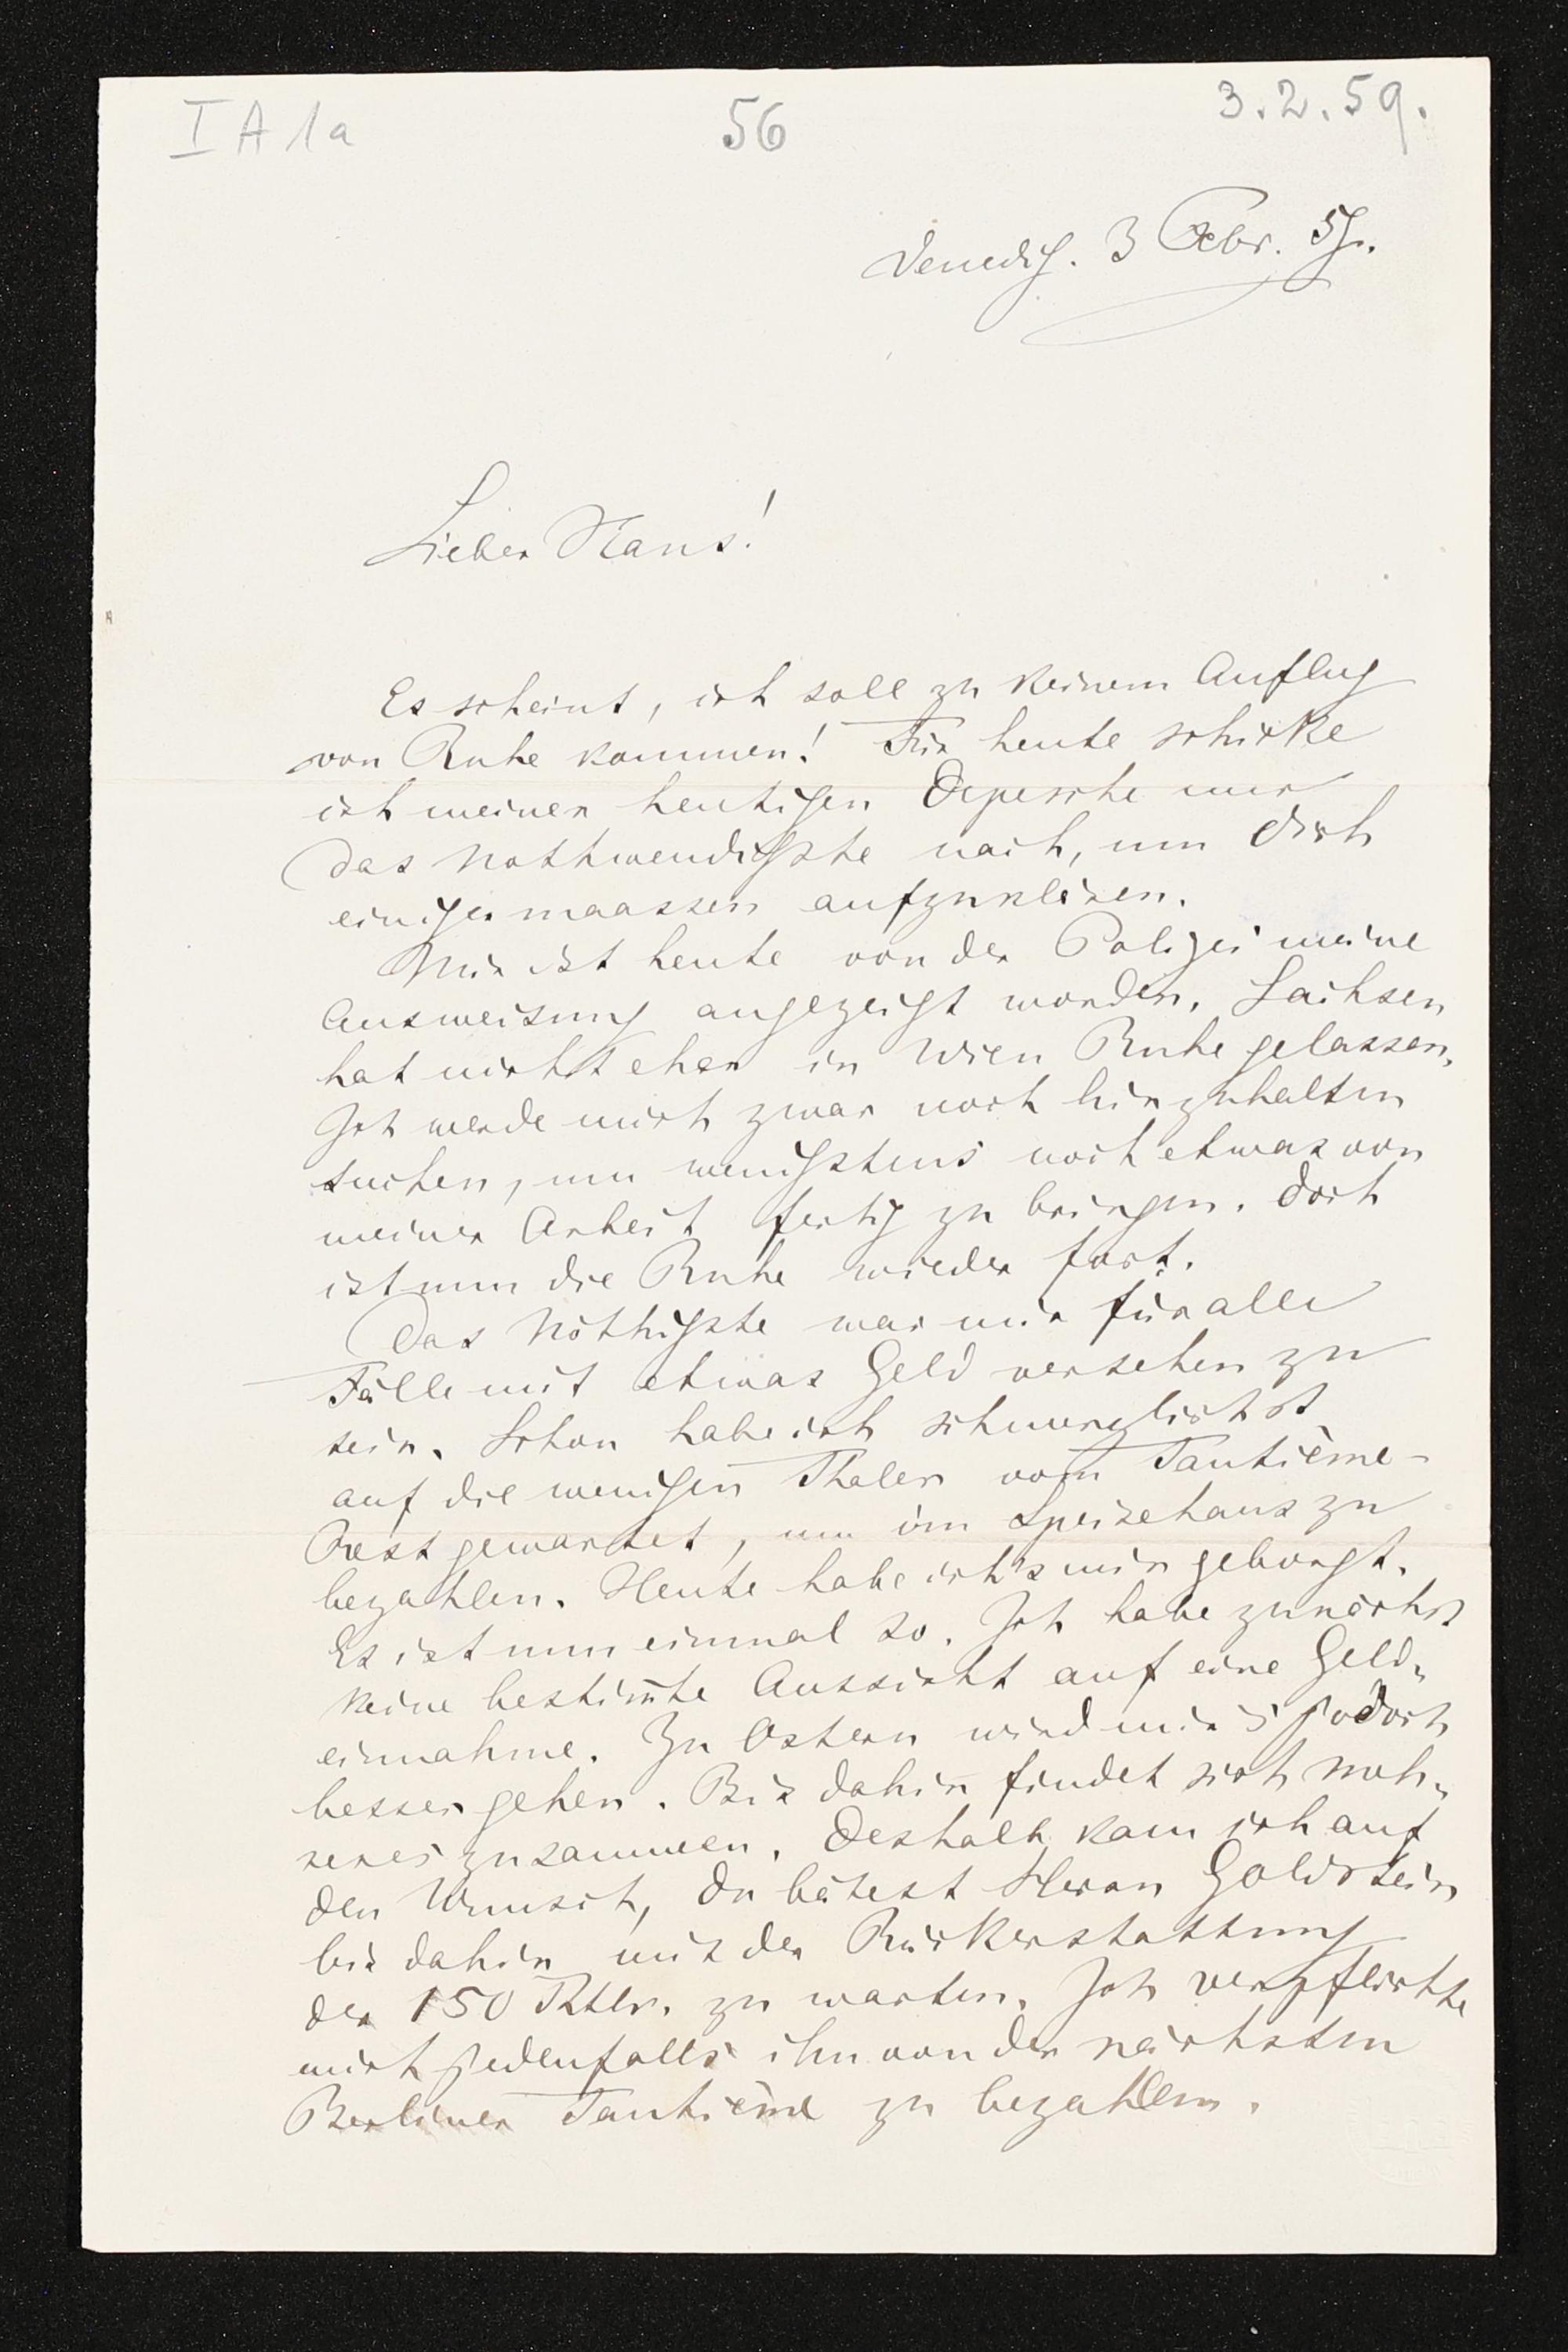 I A 1a
56
3.2.59.
Venedig. 3 Febr. 59.
Lieber Hans!
Es scheint, ich soll zu keinem Anflug
von Ruhe kommen! Für heute schicke
ich meiner heutigen Depesche nur
das Nothwendigste nach, um Dich
einigermaassen aufzuklären.
Mir ist heute von der Polizei meine
Ausweisung angezeigt worden. Sachsen
hat nicht eher in Wien Ruhe gelassen.
Ich werde mich zwar noch hinzuhalten
suchen, um wenigstens noch etwas von
meiner Arbeit fertig zu bringen. Doch
ist nun die Ruhe wieder fort.
Das Nöthigste war mir für alle
Fälle mit etwas Geld versehen zu
sein. Schon habe ich schmerzlichst
auf die wenigen Thaler vom Tantième-
Rest gewartet, um im Speisehaus zu
bezahlen. Heute habe ich's mir geborgt.
Es ist nun einmal so. Ich habe zunächst
keine bestim̅te Aussicht auf eine Geld-
einnahme. Zu Ostern wird mir's jedoch
besser gehen. Bis dahin findet sich meh-
reres zusammen. Deshalb kam ich auf
den Wunsch, Du bätest Herrn Goldstein
bis dahin mit der Rückerstattung
der 150 Rthlr. zu warten. Ich verpflichte
mich jedenfalls ihn von der nächsten
Berliner Tantième zu bezahlen.